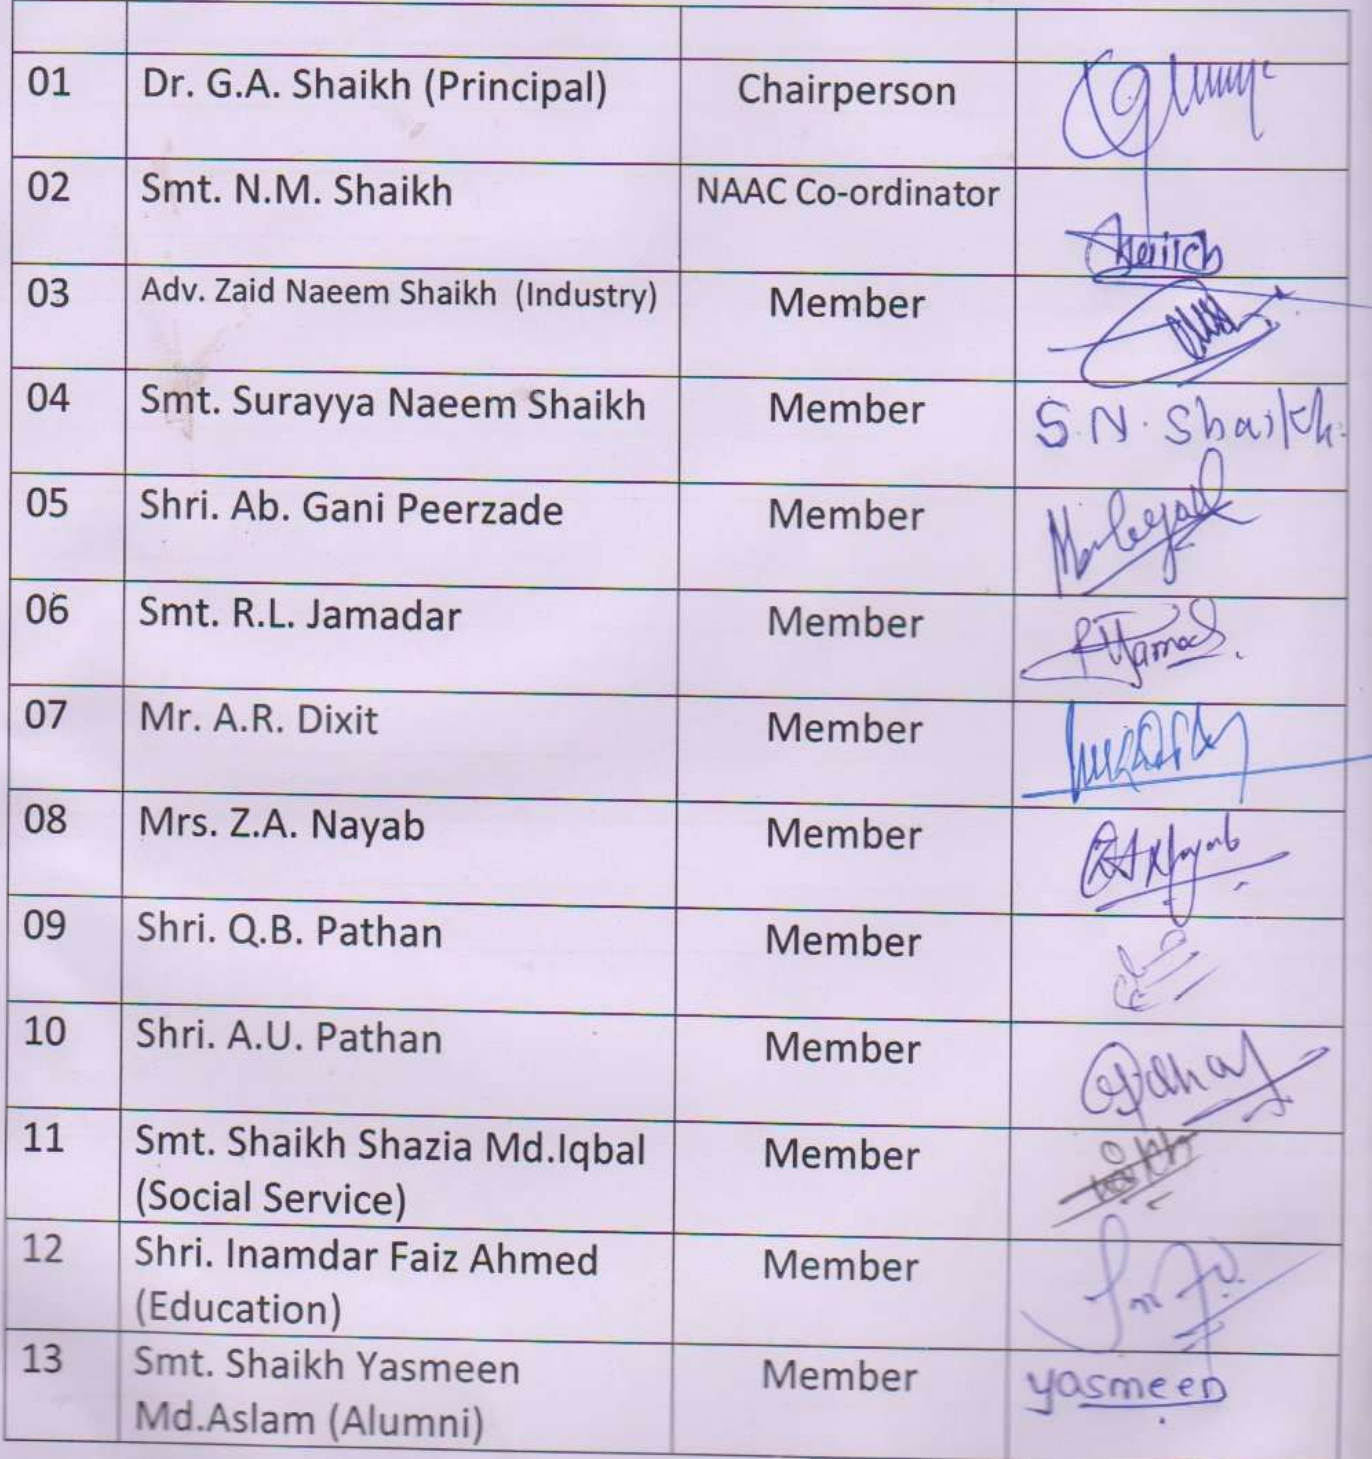 01 Dr. G.A. Shaikh (Principal) Chairperson
02 Smt. N.M. Shaikh NAAC Co-ordinator
03 Adv. Zaid Naeem Shaikh (Industry) Member
04 Smt. Surayya Naeem Shaikh Member S.N. Shaikh
05 Shri. Ab. Gani Peerzade Member
06 Smt. R.L. Jamadar Member
07 Mr. A.R. Dixit Member
08 Mrs. Z.A. Nayab Member ZA Nayab
09 Shri. Q.B. Pathan Member
10 Shri. A.U. Pathan Member
11 Smt. Shaikh Shazia Md.Iqbal Member
(Social Service)
12 Shri. Inamdar Faiz Ahmed Member
(Education)
13 Smt. Shaikh Yasmeen Member yasmeen
Md.Aslam (Alumni)